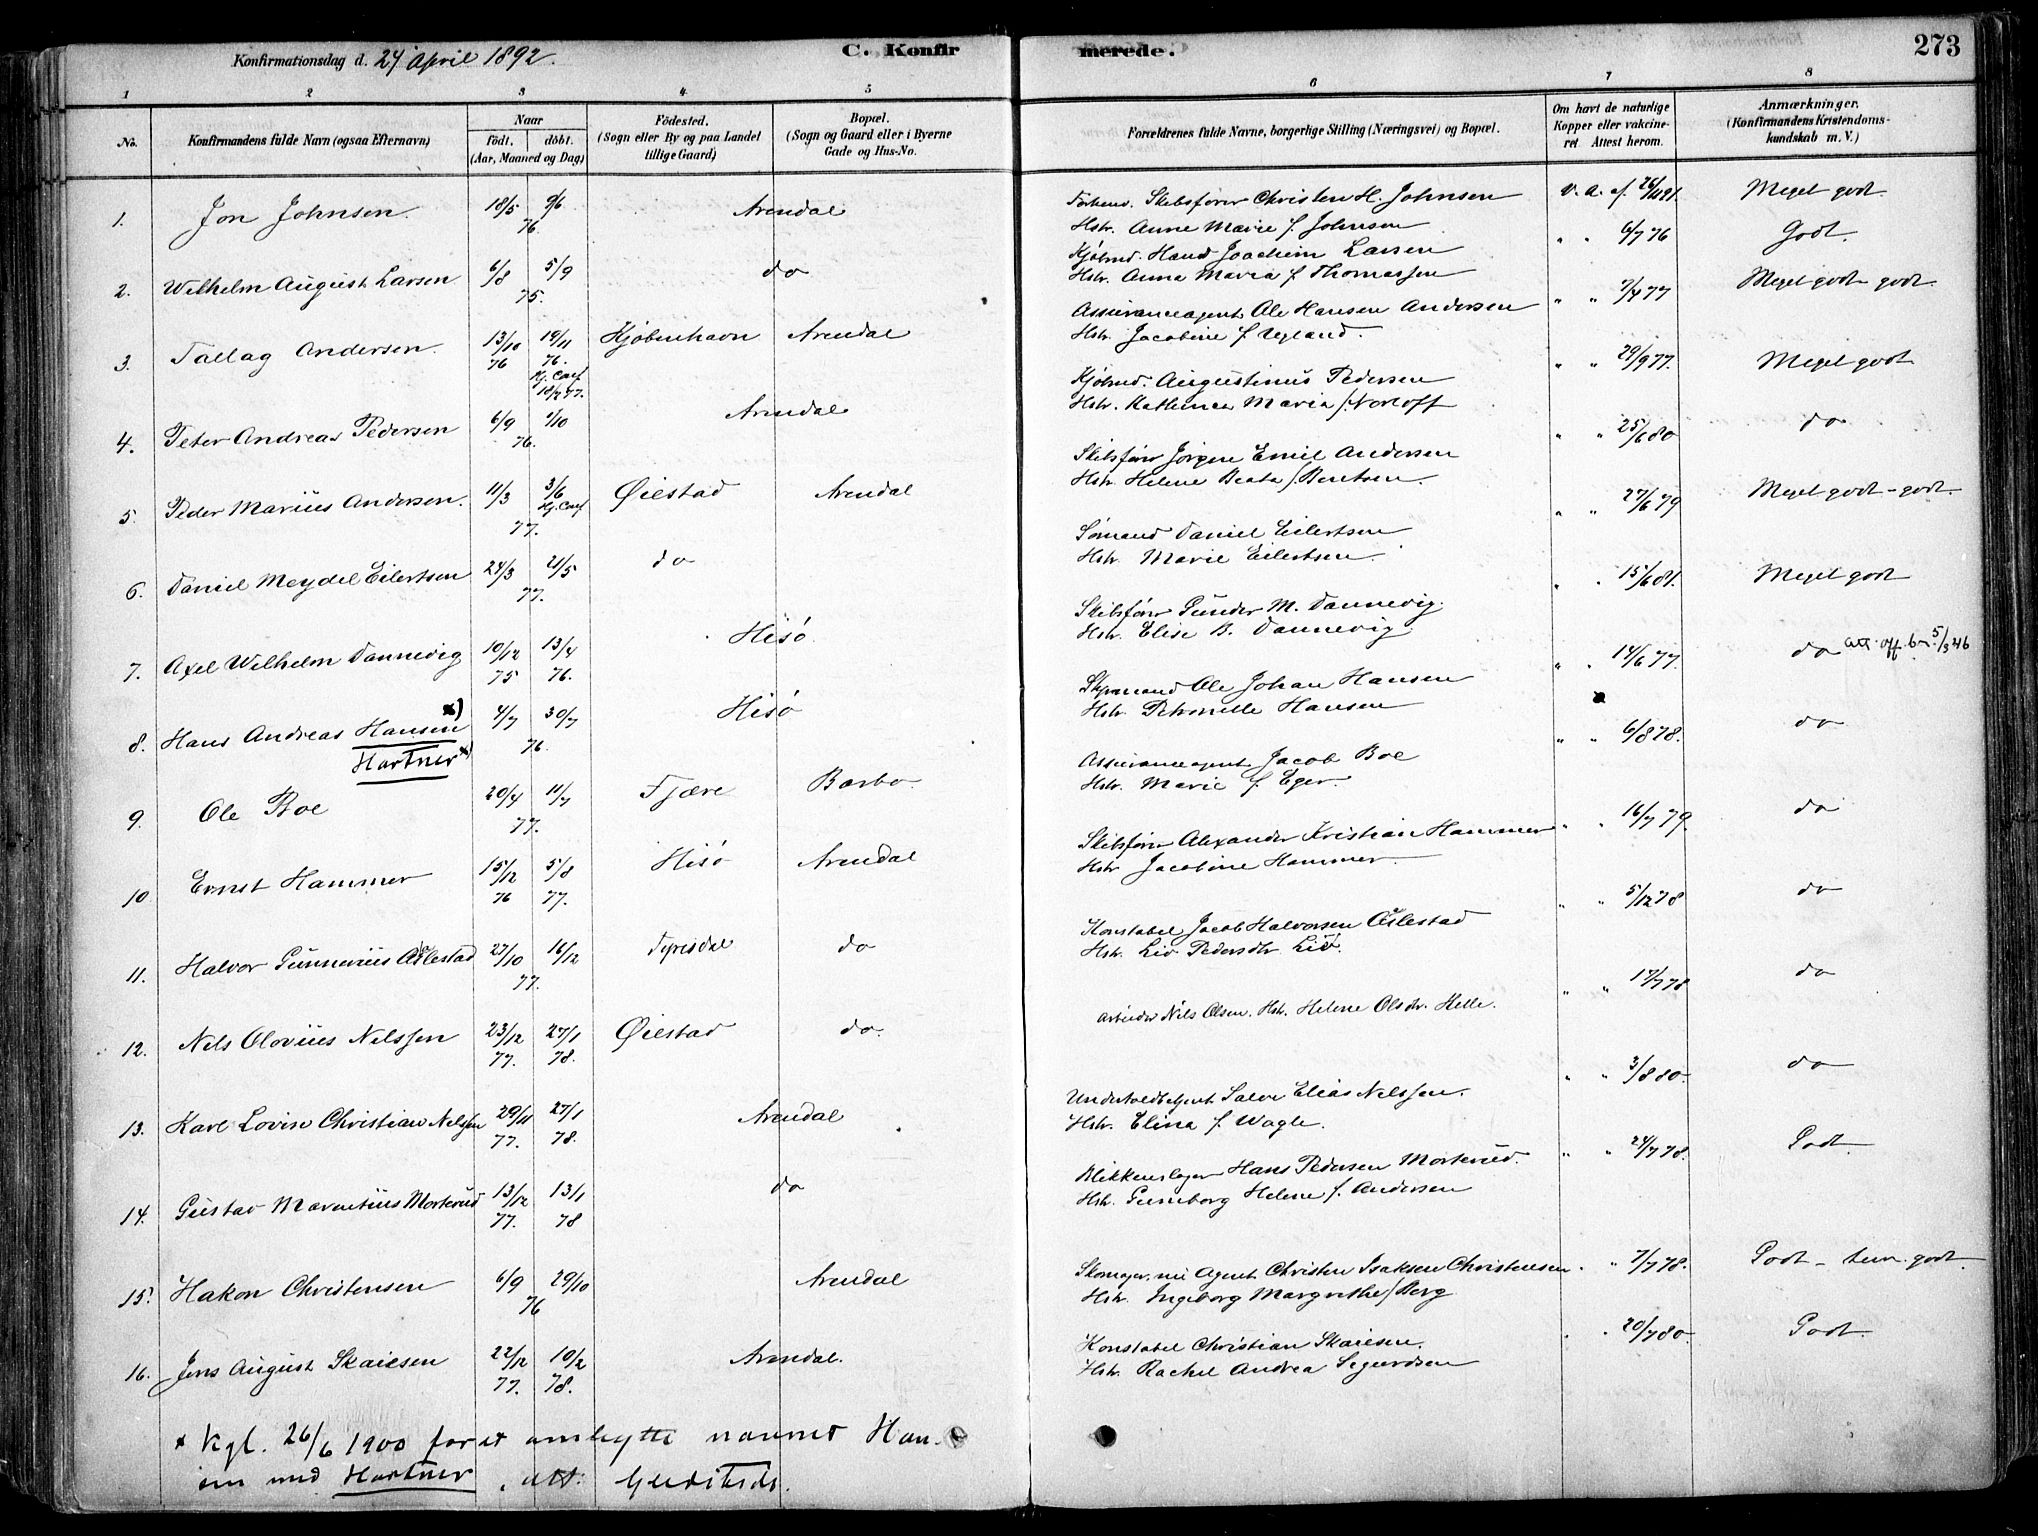 Konfirmationsdag d. 24 April 1892.
C. Konfirmerede.
273
1 2 3 4 5 6 7 8
No. Konfirmandens fulde Navn (ogsaa Efternavn) Naar födt. döbt. (Aar, Maaned og Dag) Födested. (Sogn eller By og paa Landet tillige Gaard) Bopæl. (Sogn og Gaard eller i Byerne Gade og Hus-No. Forældrenes fulde Navne, borgerlige Stilling (Næringsvei) og Bopæl. Om havt de naturlige Kopper eller vakcineret Attest herom. Anmærkninger. (Konfirmandens Kristendomskundskab m. V.)
1. Jon Johnsen. 18/5 9/6 76. Arendal Forhenv. Skibsfører Christen H. Johnsen v. a. af 26/4 91. Meget godt.
Hstr. Anne Marie f. Johnsen
2. Wilhelm August Larsen 6/8 5/9 75. do Kjøbmd. Hans Joachim Larsen " " 6/7 76 Godt.
Hstr. Anna Maria f. Thomassen
3. Tallag Andersen. 13/10 76 19/11 76. Hj. Conf 18/2 77. Kjöbenhavn Arendal Assuranceagent Ole Hansen Andersen " " 7/4 77 Meget godt - godt.
Hstr. Jacobine f. Ugland.
4. Peter Andreas Pedersen 6/9 1/10 76. Arendal Kjøbmd. Augustinus Pedersen " " 29/9 77. Meget godt
Hstr. Kathinca Maria f. Norloff
5. Peder Marius Andersen. 11/3 3/6 Hj. Conf 77. Øiestad Arendal Skibsfører Jørgen Emil Andersen " " 25/6 80 do
Hstr. Helene Beata f. Bentsen.
6. Daniel Meydel Eilertsen 24/3 21/5 77. do Sømand Daniel Eilertsen " " 27/6 79 Meget godt - godt.
Hstr. Marie Eilertsen
7. Axel Wilhelm Dannevig 10/12 75 13/4 76. Hisö. Skibsfører Gunder M. Dannevig. " " 15/6 81. Meget godt
Hstr. Elise B. Dannevig.
8. Hans Andreas Hansen x) 4/7 30/7 76. Hisö Styrmand Ole Johan Hansen " " 14/6 77. do att. off. br. 5/3 46
Hartner x) Hstr. Petronelle Hansen
9. Ole Boe 20/4 11/7 77. Fjære Barbo. Assuranceagent Jacob Boe " " 6/8 78. do
Hstr. Marie f. Eger.
10 Ernst Hammer 15/12 76 5/8 77. Hisö Arendal Skibsfører Alexander Kristian Hammer " " 16/7 79. do
Hstr. Jacobine Hammer.
11. Halvor Gunnerius Aslestad 27/10 16/12 77. Tyrisdal do Konstabel Jacob Halvorsen Aslestad " " 5/12 78 do
Hstr. Liv Pedersdtr. Liö.
12. Nils Olovius Nilssen 23/12 77. 27/1 78. Øiestad do. Arbeider Nils Olsen. Hstr. Helene Olsdtr. Helle. " " 17/7 78 do
13. Karl Lovin Christian Nilssen 29/11 77. 27/1 78. Arendal Underholdbetjent Salve Elias Nilssen. " " 3/8 80. do
Hstr. Elina f. Wagle.
14. Gustav Marentius Morterud 13/12 77. 13/1 78 do Blikkenslager Hans Pedersen Morterud. " " 24/7 78. Godt.
Hstr. Gunnborg Helene f. Andersen
15. Hakon Christensen 6/9 29/10 76 Arendal Skomager, nu Agent Christen Isaksen Christensen " " 7/7 78. Godt - tem. godt.
Hstr. Ingeborg Margrethe f. Berg
16. Jens August Skaiesen 22/12 77. 10/2 78. Arendal. Konstabel Christian Skaiesen. " " 20/7 80. Godt.
Hstr. Rachel Andrea Segurdsen
x Kgl. 26/6 1900 for at ombytte navnet Han-
sen med Hartner